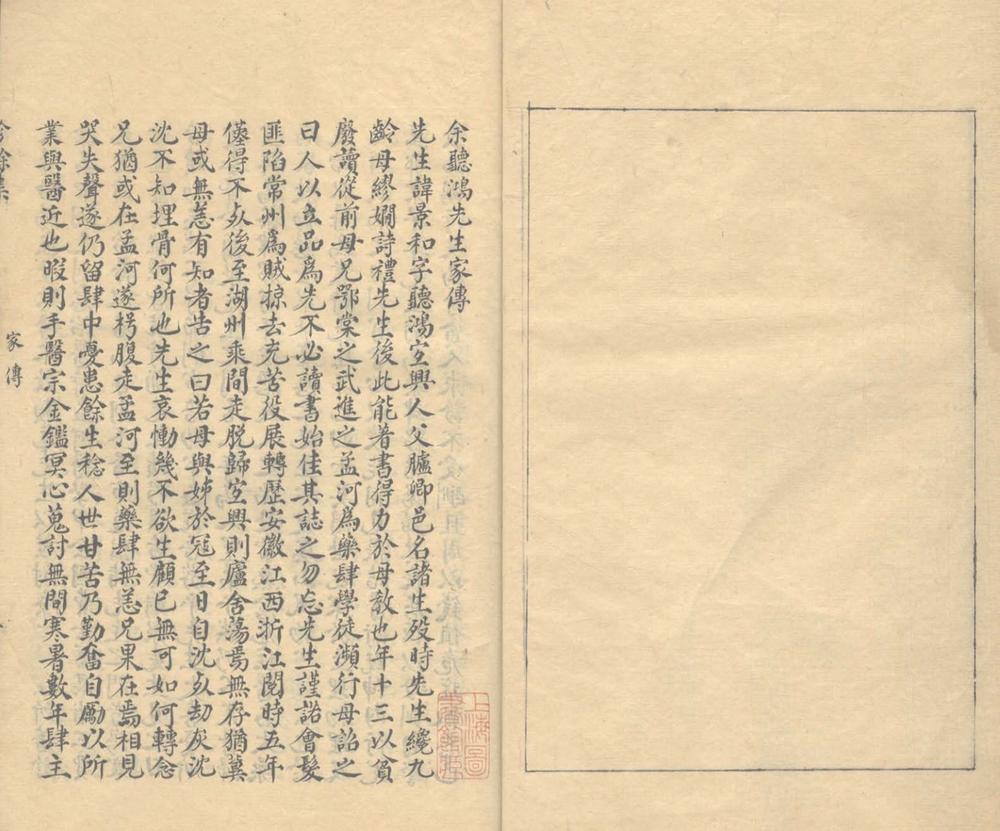 余聽鴻先生家傳
先生諱景和字聽鴻宜興人父臚卿邑名諸生歿時先生纔九
齡母繆嫺詩禮先生後此能著書得力於母教也年十三以貧
廢讀從前母兄鄂棠之武進之孟河為藥肆學徒瀕行母詔之
曰人以立品為先不必讀書始佳其誌之勿忘先生謹諾會髮
匪陷常州為賊掠去充苦役展轉歷安徽江西浙江閱時五年
僅得不死後至湖州乘間走脫歸宜興則廬舍蕩焉無存猶冀
母或無恙有知者告之曰若母與姊於冠至日自沈死劫灰沈
沈不知埋骨何所也先生哀慟幾不欲生顧已無可如何轉念
兄猶或在孟河遂枵腹走孟河至則藥肆無恙兄果在焉相見
哭失聲遂仍留肆中憂患餘生稔人世甘苦乃勤奮自勵以所
業與醫近也暇則手醫宗金鑑冥心蒐討無間寒暑數年肆主
診餘集
家傳
上海圖